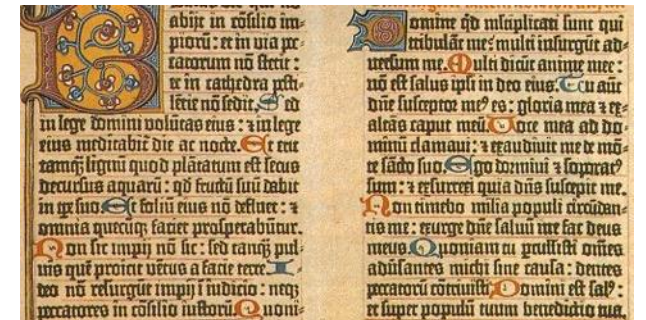 abijt in cōsilio im⸗
piorū : et in via pec⸗
catorum nō stetit :
et in cathedra pesti⸗
lētie nō sedit. Sed
in lege domini volūtas eius : ⁊ in lege
eius meditabit̄ die ac nocte. Et erit
tamqȝ lignū quod plātatum est secus
decursus aquarū : qđ fructū suū dabit
in tp̄e suo. Et foliū eius nō defluet : ⁊
omnia quecūqȝ faciet prosperabūtur.
Non sic impij nō sic : sed tamqȝ pul⸗
uis quē proicit vētus a facie terre. I⸗
deo nō resurgūt impij ī iudicio : neqȝ
peccatores in cōsilio iustorū. Quoni⸗
Domine qđ mltiplicati sunt qui
tribulāt meꝰ multi insurgūt ad⸗
uersum me. Multi dicūt anime mee :
nō est salus ipsi in deo eius. Tu aūt
dn̄e susceptor meꝰ es : gloria mea ⁊ ex⸗
altās caput meū. Voce mea ad do⸗
minū clamaui : ⁊ exaudiuit me de mō⸗
te sācto suo. Ego dormiui ⁊ soporatꝰ
sum : ⁊ exsurrexi quia dn̄s suscepit me.
Non timebo milia populi circūdan⸗
tis me : exurge dn̄e saluū me fac deus
meus. Quoniam tu percussisti om̄es
aduersantes michi sine causa : dentes
peccatorū cōtriuisti. Domini est salꝰ :
et super populū tuum benedictio tua.